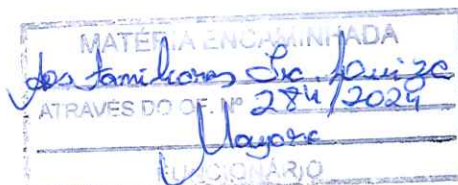 MATÉRIA ENCAMINHADA
aos familiares Sra. Luiza
ATRAVÉS DO OF. Nº 284/2024
Mayara
FUNCIONÁRIO